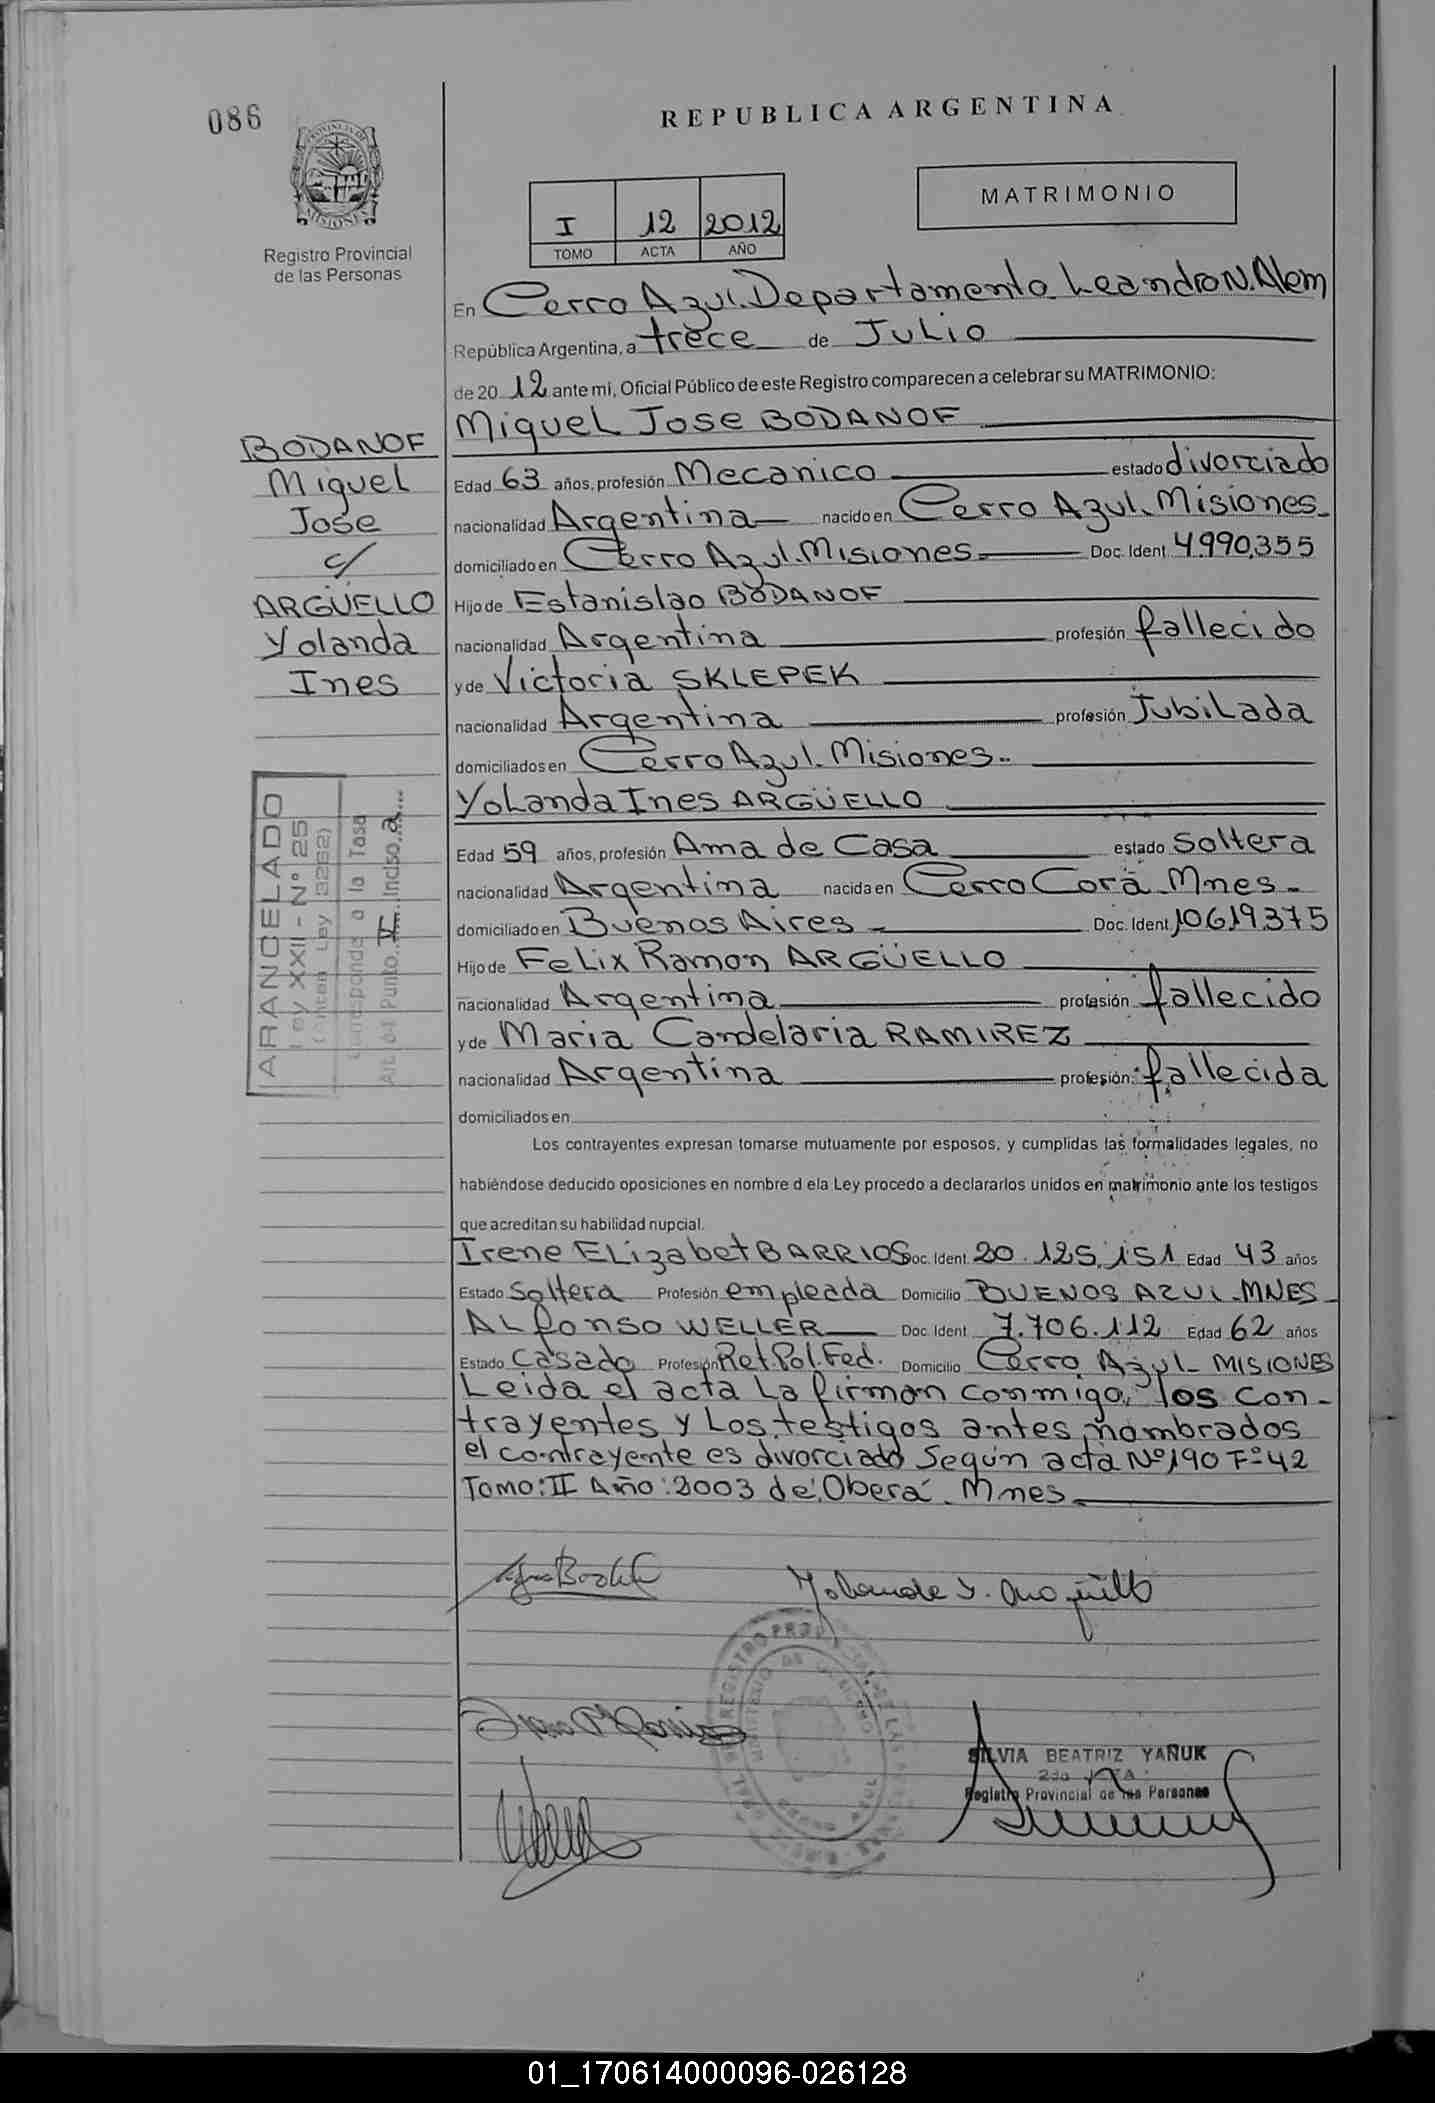 086
REPUBLICA ARGENTINA
PROVINCIA DE
MISIONES
Registro Provincial
de las Personas
MATRIMONIO
I 12 2012
TOMO ACTA AÑO
En Cerro Azul. Departamento Leandro N. Alem
República Argentina, a trece de Julio
de 20 12 ante mi, Oficial Público de este Registro comparecen a celebrar su MATRIMONIO:
Miguel Jose BODANOF
BODANOF
Miguel
Jose
c/
ARGÜELLO
Yolanda
Ines
Edad 63 años, profesión Mecanico estado divorciado
nacionalidad Argentina nacido en Cerro Azul. Misiones
domiciliado en Cerro Azul. Misiones. Doc. Ident 4.990.355
Hijo de Estanislao BODANOF
nacionalidad Argentina profesión fallecido
y de Victoria SKLEPEK
nacionalidad Argentina profesión Jubilada
domiciliados en Cerro Azul. Misiones.
Yolanda Ines ARGÜELLO
ARANCELADO
Ley XXII - N° 25
(Antes Ley 3262)
Corresponde a la Tasa
Art. 04 Punto V Inciso a
Edad 59 años, profesión Ama de Casa estado Soltera
nacionalidad Argentina nacida en Cerro Corá. Mnes.
domiciliado en Buenos Aires Doc. Ident 10.619.375
Hijo de Felix Ramon ARGÜELLO
nacionalidad Argentina profesión fallecido
y de Maria Candelaria RAMIREZ
nacionalidad Argentina profesión: fallecida
domiciliados en
Los contrayentes expresan tomarse mutuamente por esposos, y cumplidas las formalidades legales, no
habiéndose deducido oposiciones en nombre d ela Ley procedo a declararlos unidos en matrimonio ante los testigos
que acreditan su habilidad nupcial.
Irene Elizabet BARRIOS Doc. Ident. 20.125.151 Edad 43 años
Estado Soltera Profesión empleada Domicilio BUENOS AZUL. MNES
Alfonso WELLER Doc. Ident 7.706.112 Edad 62 años
Estado Casado Profesión Ret. Pol. Fed. Domicilio Cerro Azul. MISIONES
Leida el acta la firman conmigo, los con-
trayentes y los testigos antes nombrados
el contrayente es divorciado Según acta Nº 190 Fº 42
Tomo: II Año: 2003 de Oberá. Mnes.
Yolanda I. Arguello
SILVIA BEATRIZ YAÑUK
2da JEFA
Registro Provincial de las Personas
01_170614000096-026128